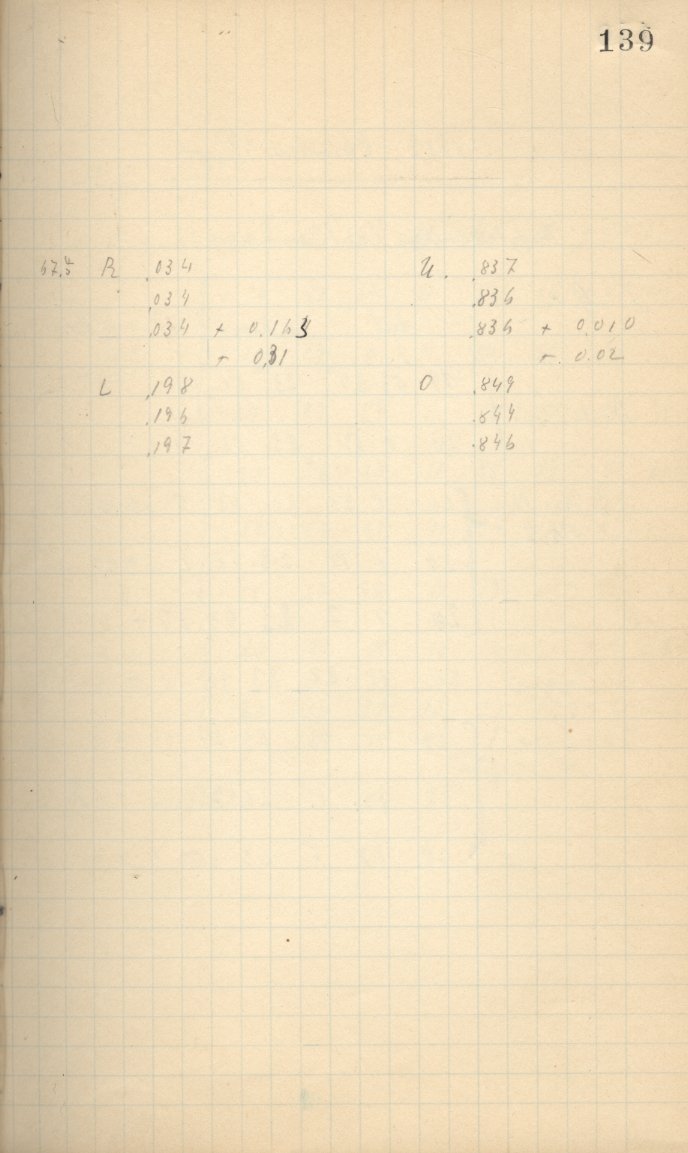 139
R .034 U. .837
.034 .836
.034 + 0.163 .836 + 0.010
+ 0.31 + 0.02
L .198 O .849
.196 .844
.197 .846